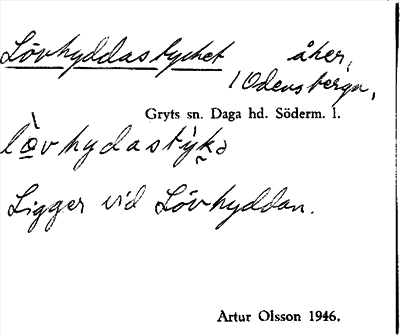 Lövhyddastycket åker,
/ Odensberga,
Gryts sn. Daga hd. Söderm. l.
lœ̀vhydastýkə
Ligger vid Lövhyddan.
Artur Olsson 1946.